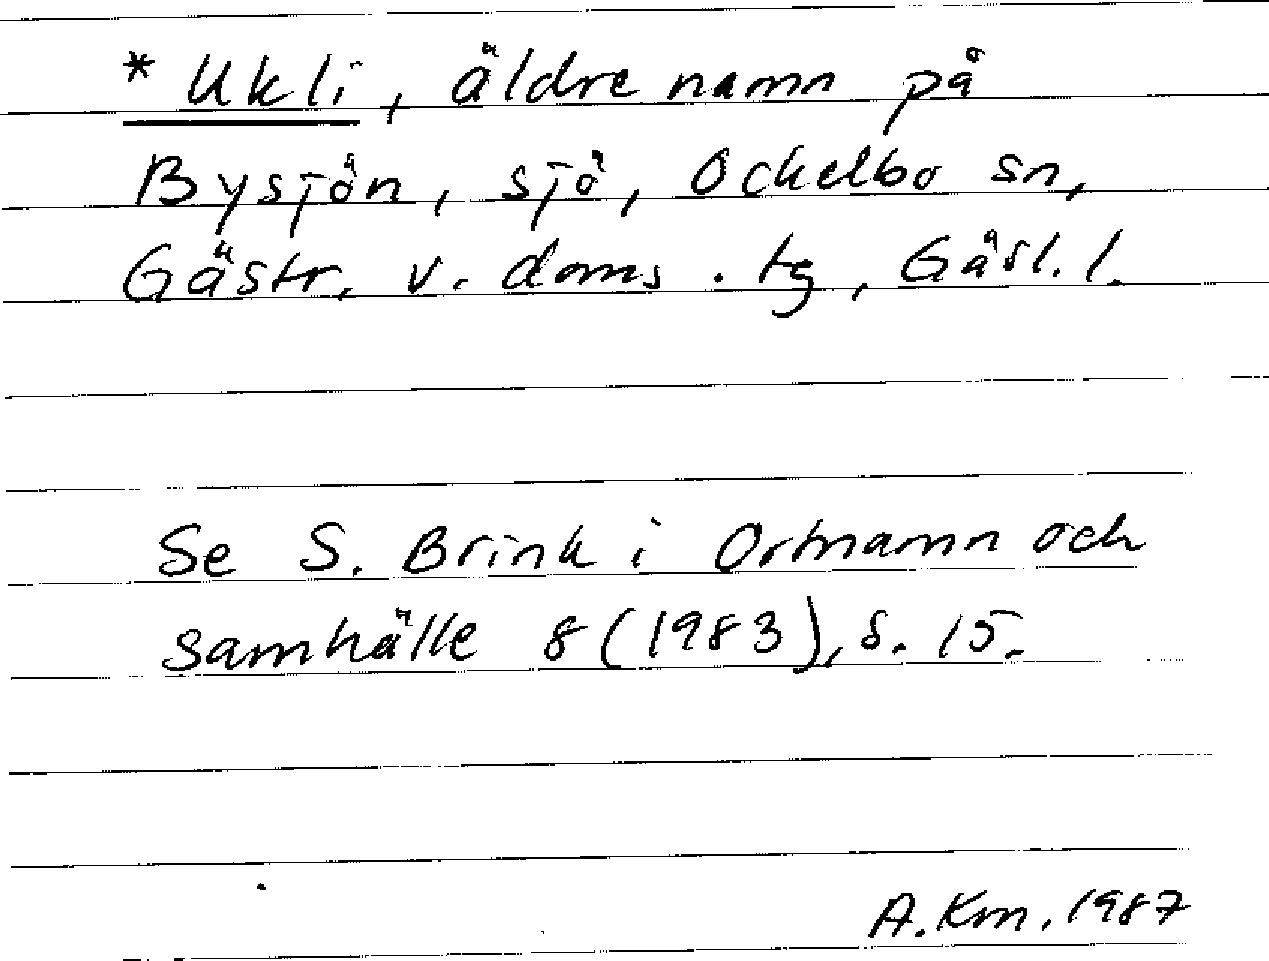 * Ukli, äldre namn på
Bysjön, sjö, Ockelbo sn,
Gästr. v. doms. tg, Gäsl. l.
Se S. Brink i Ortnamn och
samhälle 8 (1983), s. 15.
A. Km. 1987